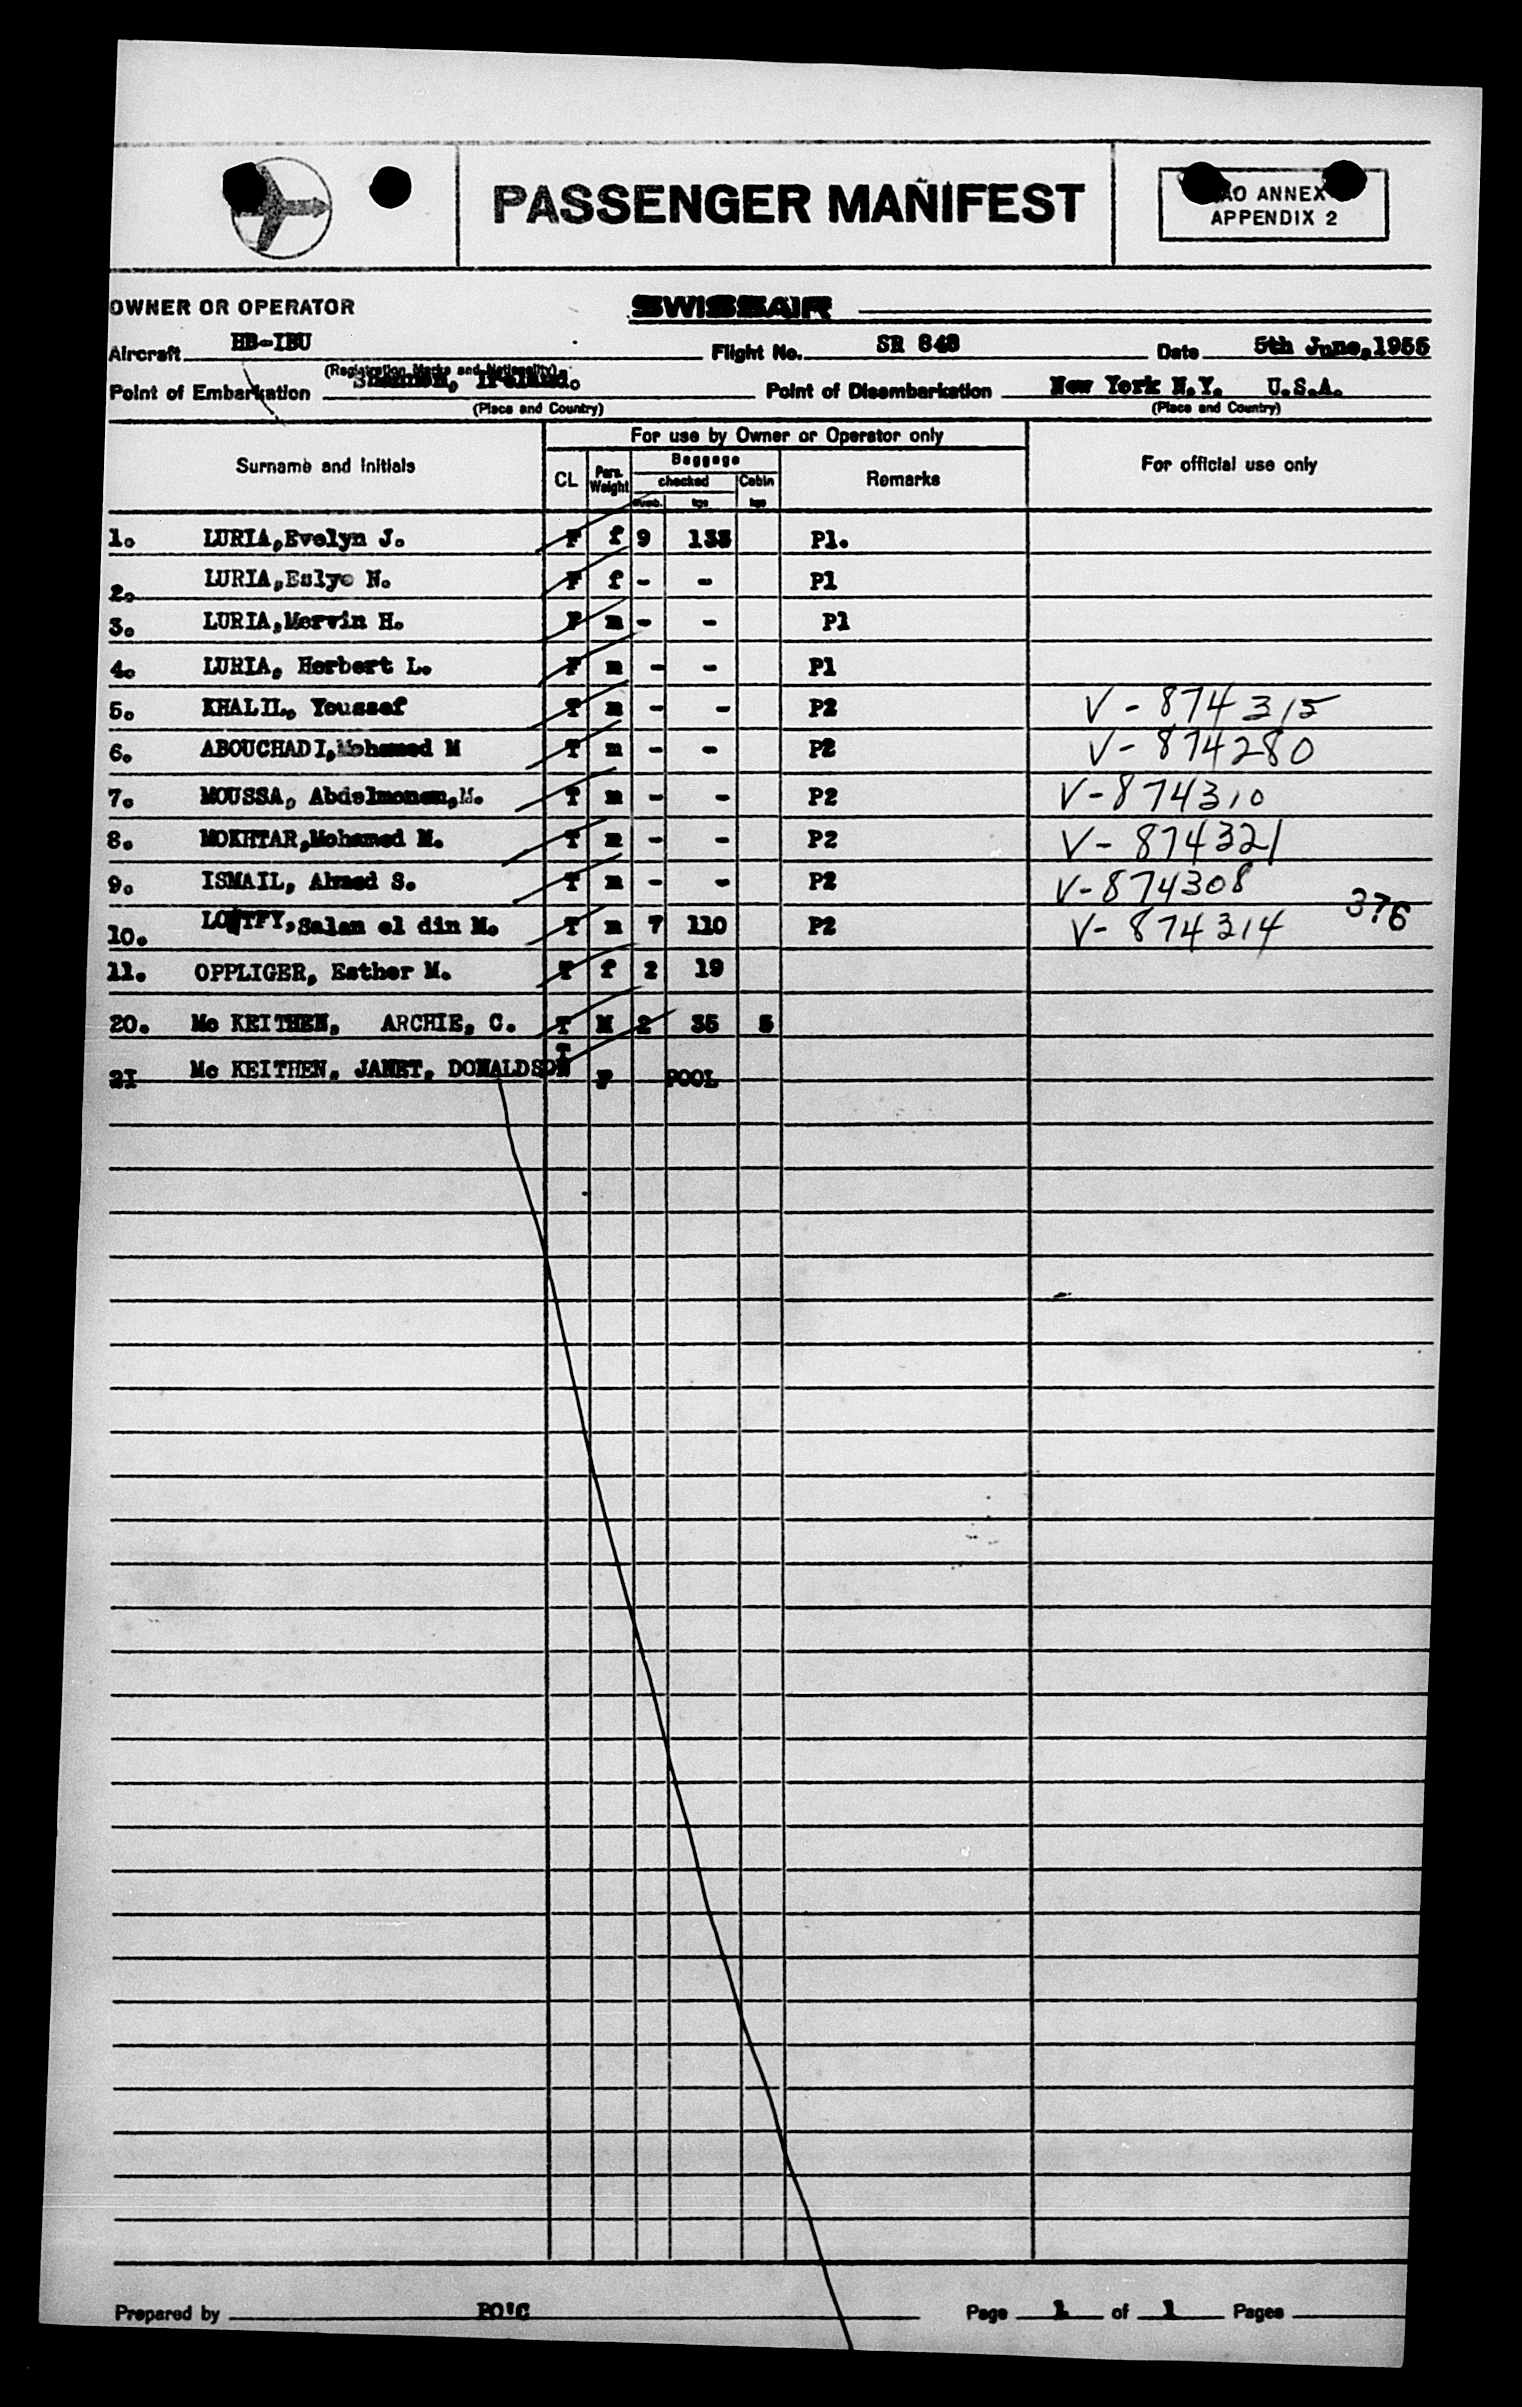 PASSENGER MANIFEST
AO ANNEX
APPENDIX 2
OWNER OR OPERATOR SWISSAIR
Aircraft HB-IBU Flight No. SR 848 Date 5th June,1955
(Registration Marks and Nationality)
Point of Embarkation Shannon, Ireland. Point of Disembarkation New York N.Y. U.S.A.
(Place and Country) (Place and Country)
For use by Owner or Operator only
Surname and Initials CL Pers. Weight Baggage Remarks For official use only
checked Cabin
Numb. kgs kgs
1. LURIA,Evelyn J. F f 9 133 P1.
2. LURIA,Eslye N. F f - - P1
3. LURIA,Mervin H. F m - - P1
4. LURIA, Herbert L. F m - - P1
5. KHALIL, Youssef T m - - P2 V-874315
6. ABOUCHADI,Mohamed M T m - - P2 V-874280
7. MOUSSA, Abdelmonem,M. T m - - P2 V-874310
8. MOKHTAR,Mohamed M. T m - - P2 V-874321
9. ISMAIL, Ahmed S. T m - - P2 V-874308
10. LOUTFY,Salan el din M. T m 7 110 P2 V-874314 376
11. OPPLIGER, Esther M. T f 2 19
20. Mc KEITHEN, ARCHIE, C. T M 2 35 5
21 Mc KEITHEN, JANET, DONALDSON T F POOL
Prepared by PO'C Page 1 of 1 Pages